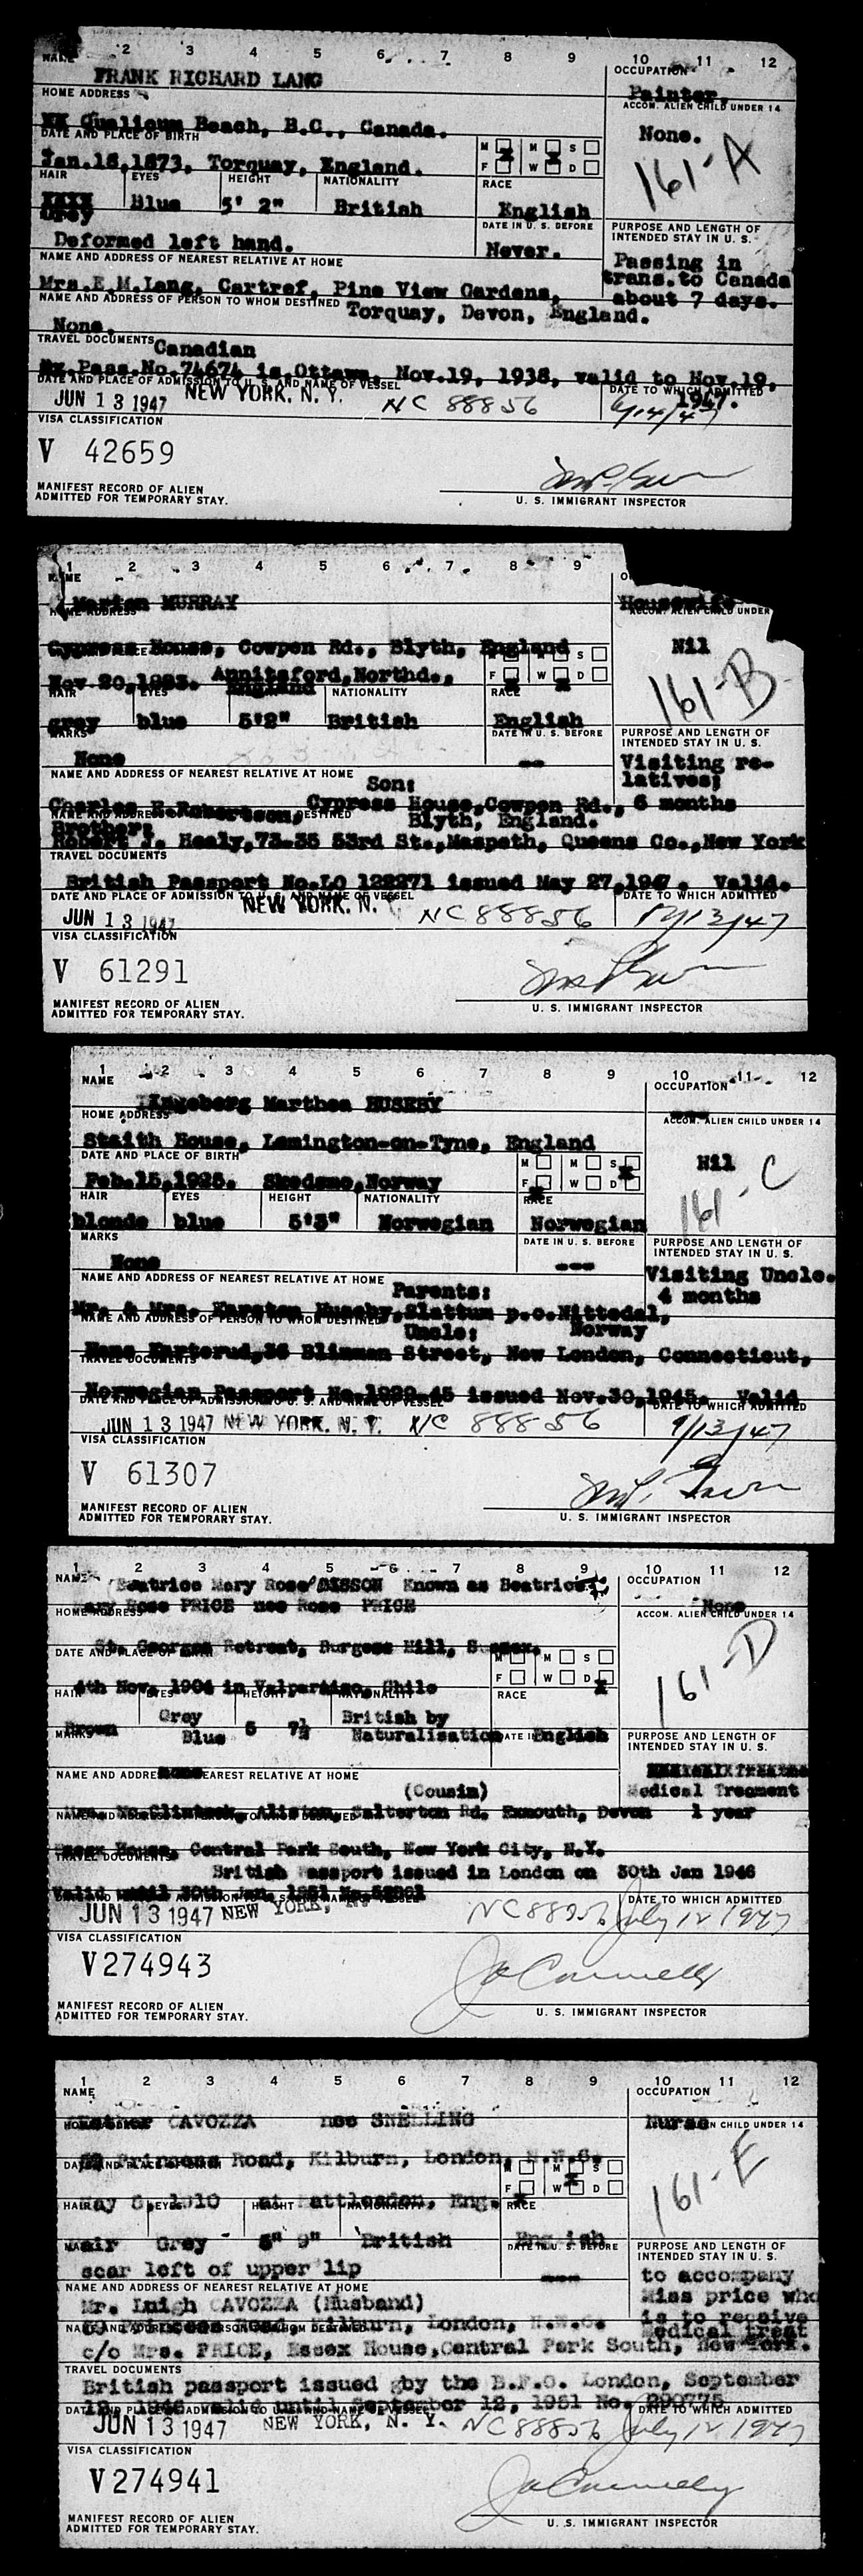 1 2 3 4 5 6 7 8 9 10 11 12
NAME OCCUPATION
FRANK RICHARD LANG Painter.
HOME ADDRESS ACCOM. ALIEN CHILD UNDER 14
XX Qualicum Beach, B.C., Canada. None.
DATE AND PLACE OF BIRTH M M S
Jan.18,1873, Torquay, England. F W D
161-A
HAIR EYES HEIGHT NATIONALITY RACE
XXXX Grey Blue 5' 2" British English
DATE IN U. S. BEFORE PURPOSE AND LENGTH OF INTENDED STAY IN U. S.
Deformed left hand. Never.
NAME AND ADDRESS OF NEAREST RELATIVE AT HOME Passing in trans.to Canada about 7 days.
Mrs.E.M.Lang, Cartref, Pine View Gardens,
NAME AND ADDRESS OF PERSON TO WHOM DESTINED Torquay, Devon, England.
None.
TRAVEL DOCUMENTS Canadian
Pass.No.74674 is.Ottawa, Nov.19, 1938, valid to Nov.19, 1947.
DATE AND PLACE OF ADMISSION TO U. S. AND NAME OF VESSEL DATE TO WHICH ADMITTED
JUN 13 1947 NEW YORK, N. Y. NC 88856 6/14/47
VISA CLASSIFICATION
V 42659
MANIFEST RECORD OF ALIEN
ADMITTED FOR TEMPORARY STAY. U. S. IMMIGRANT INSPECTOR
1 2 3 4 5 6 7 8 9
NAME
Marion MURRAY Housewife
HOME ADDRESS ACCOM. ALIEN CHILD UNDER
Cypress House, Cowpen Rd., Blyth, England Nil
Annitsford,Northd., S
Nov 20, England F W D
161-B
HAIR EYES NATIONALITY RACE
grey blue 5'2" British English
MARKS DATE IN U. S. BEFORE PURPOSE AND LENGTH OF INTENDED STAY IN U. S.
None -- Visiting relatives;
NAME AND ADDRESS OF NEAREST RELATIVE AT HOME
Son:
Charles R.Robertson, Cypress House,Cowpen Rd., 6 months
Brother: Blyth, England.
Robert J. Healy,73-35 53rd St.,Maspeth, Queens Co.,New York
TRAVEL DOCUMENTS
British Passport No.LO 122271 issued May 27,1947. Valid.
DATE AND PLACE OF ADMISSION TO U. S. AND NAME OF VESSEL DATE TO WHICH ADMITTED
JUN 13 1947 NEW YORK, N. Y. NC 88856 12/13/47
VISA CLASSIFICATION
V 61291
MANIFEST RECORD OF ALIEN
ADMITTED FOR TEMPORARY STAY. U. S. IMMIGRANT INSPECTOR
1 2 3 4 5 6 7 8 9 10 11 12
NAME OCCUPATION
Ingeborg Marthea HUSEBY ---
HOME ADDRESS ACCOM. ALIEN CHILD UNDER 14
Staith House, Lemington-on-Tyne, England Nil
DATE AND PLACE OF BIRTH M M S
Feb.15,1925. Skedsmo,Norway F W D
161-C
HAIR EYES HEIGHT NATIONALITY RACE
blonde blue 5'3" Norwegian Norwegian
MARKS DATE IN U. S. BEFORE PURPOSE AND LENGTH OF INTENDED STAY IN U. S.
None --- Visiting Uncle. 4 months
NAME AND ADDRESS OF NEAREST RELATIVE AT HOME Parents:
Mr. & Mrs. Karsten Huseby,Slattum p.o.Nittedal, Norway
NAME AND ADDRESS OF PERSON TO WHOM DESTINED Uncle:
Hans Karterud,36 Blinman Street, New London, Connecticut,
TRAVEL DOCUMENTS
Norwegian Passport No.1929-45 issued Nov.30,1945. Valid
DATE AND PLACE OF ADMISSION TO U. S. AND NAME OF VESSEL DATE TO WHICH ADMITTED
JUN 13 1947 NEW YORK, N. Y. NC 88856 9/13/47
VISA CLASSIFICATION
V 61307
MANIFEST RECORD OF ALIEN
ADMITTED FOR TEMPORARY STAY. U. S. IMMIGRANT INSPECTOR
1 2 3 4 5 6 7 8 9 10 11 12
NAME Beatrice Mary Rose SISSON Known as Beatrice OCCUPATION
HOME ADDRESS Mary Rose PRICE nee Rose PRICE None
ACCOM. ALIEN CHILD UNDER 14
St. Georges Retreat, Burgess Hill, Sussex.
DATE AND PLACE OF BIRTH M M S
4th Nov. 1904 in Valparaiso, Chile F W D
161-D
HAIR EYES HEIGHT NATIONALITY RACE
Brown Grey Blue 5 7½ British by Naturalisation English
MARKS PURPOSE AND LENGTH OF INTENDED STAY IN U. S.
none
NAME AND ADDRESS OF NEAREST RELATIVE AT HOME
(Cousin) Medical Treament
Salterton Rd. Exmouth, Devon 1 year
Essex House, Central Park South, New York City, N.Y.
TRAVEL DOCUMENTS
British Passport issued in London on 30th Jan 1946
Valid until 30th Jan 1951
DATE TO WHICH ADMITTED
JUN 13 1947 NEW YORK, NY NC88856 July 12 1947
VISA CLASSIFICATION
V274943
J Connelly
MANIFEST RECORD OF ALIEN
ADMITTED FOR TEMPORARY STAY. U. S. IMMIGRANT INSPECTOR
1 2 3 4 5 6 7 8 9 10 11 12
NAME OCCUPATION
Esther CAVOZZA nee SNELLING Nurse
HOME ADDRESS CHILD UNDER 14
Princess Road, Kilburn, London, N.W.6.
DATE AND PLACE OF BIRTH M M S
May 8, 1910 at Battlesden, Eng. F W D
161-E
HAIR EYES HEIGHT NATIONALITY RACE
Fair Grey 5" 9" British English
DATE IN U. S. BEFORE PURPOSE AND LENGTH OF INTENDED STAY IN U. S.
scar left of upper lip ---- to accompany
NAME AND ADDRESS OF NEAREST RELATIVE AT HOME Miss price who
Mr. Luigh CAVOZZA (Husband) is to receive
Princess Road, Kilburn, London, N.W.6. Medical treat
c/o Mrs. PRICE, Essex House,Central Park South, New York.
TRAVEL DOCUMENTS
British passport issued gby the B.F.O. London, September
12, 1946 valid until September 12, 1951 No. 290775
DATE TO WHICH ADMITTED
JUN 13 1947 NEW YORK, N. Y. NC88856 July 12 1947
VISA CLASSIFICATION
V274941
J Connelly
MANIFEST RECORD OF ALIEN
ADMITTED FOR TEMPORARY STAY. U. S. IMMIGRANT INSPECTOR